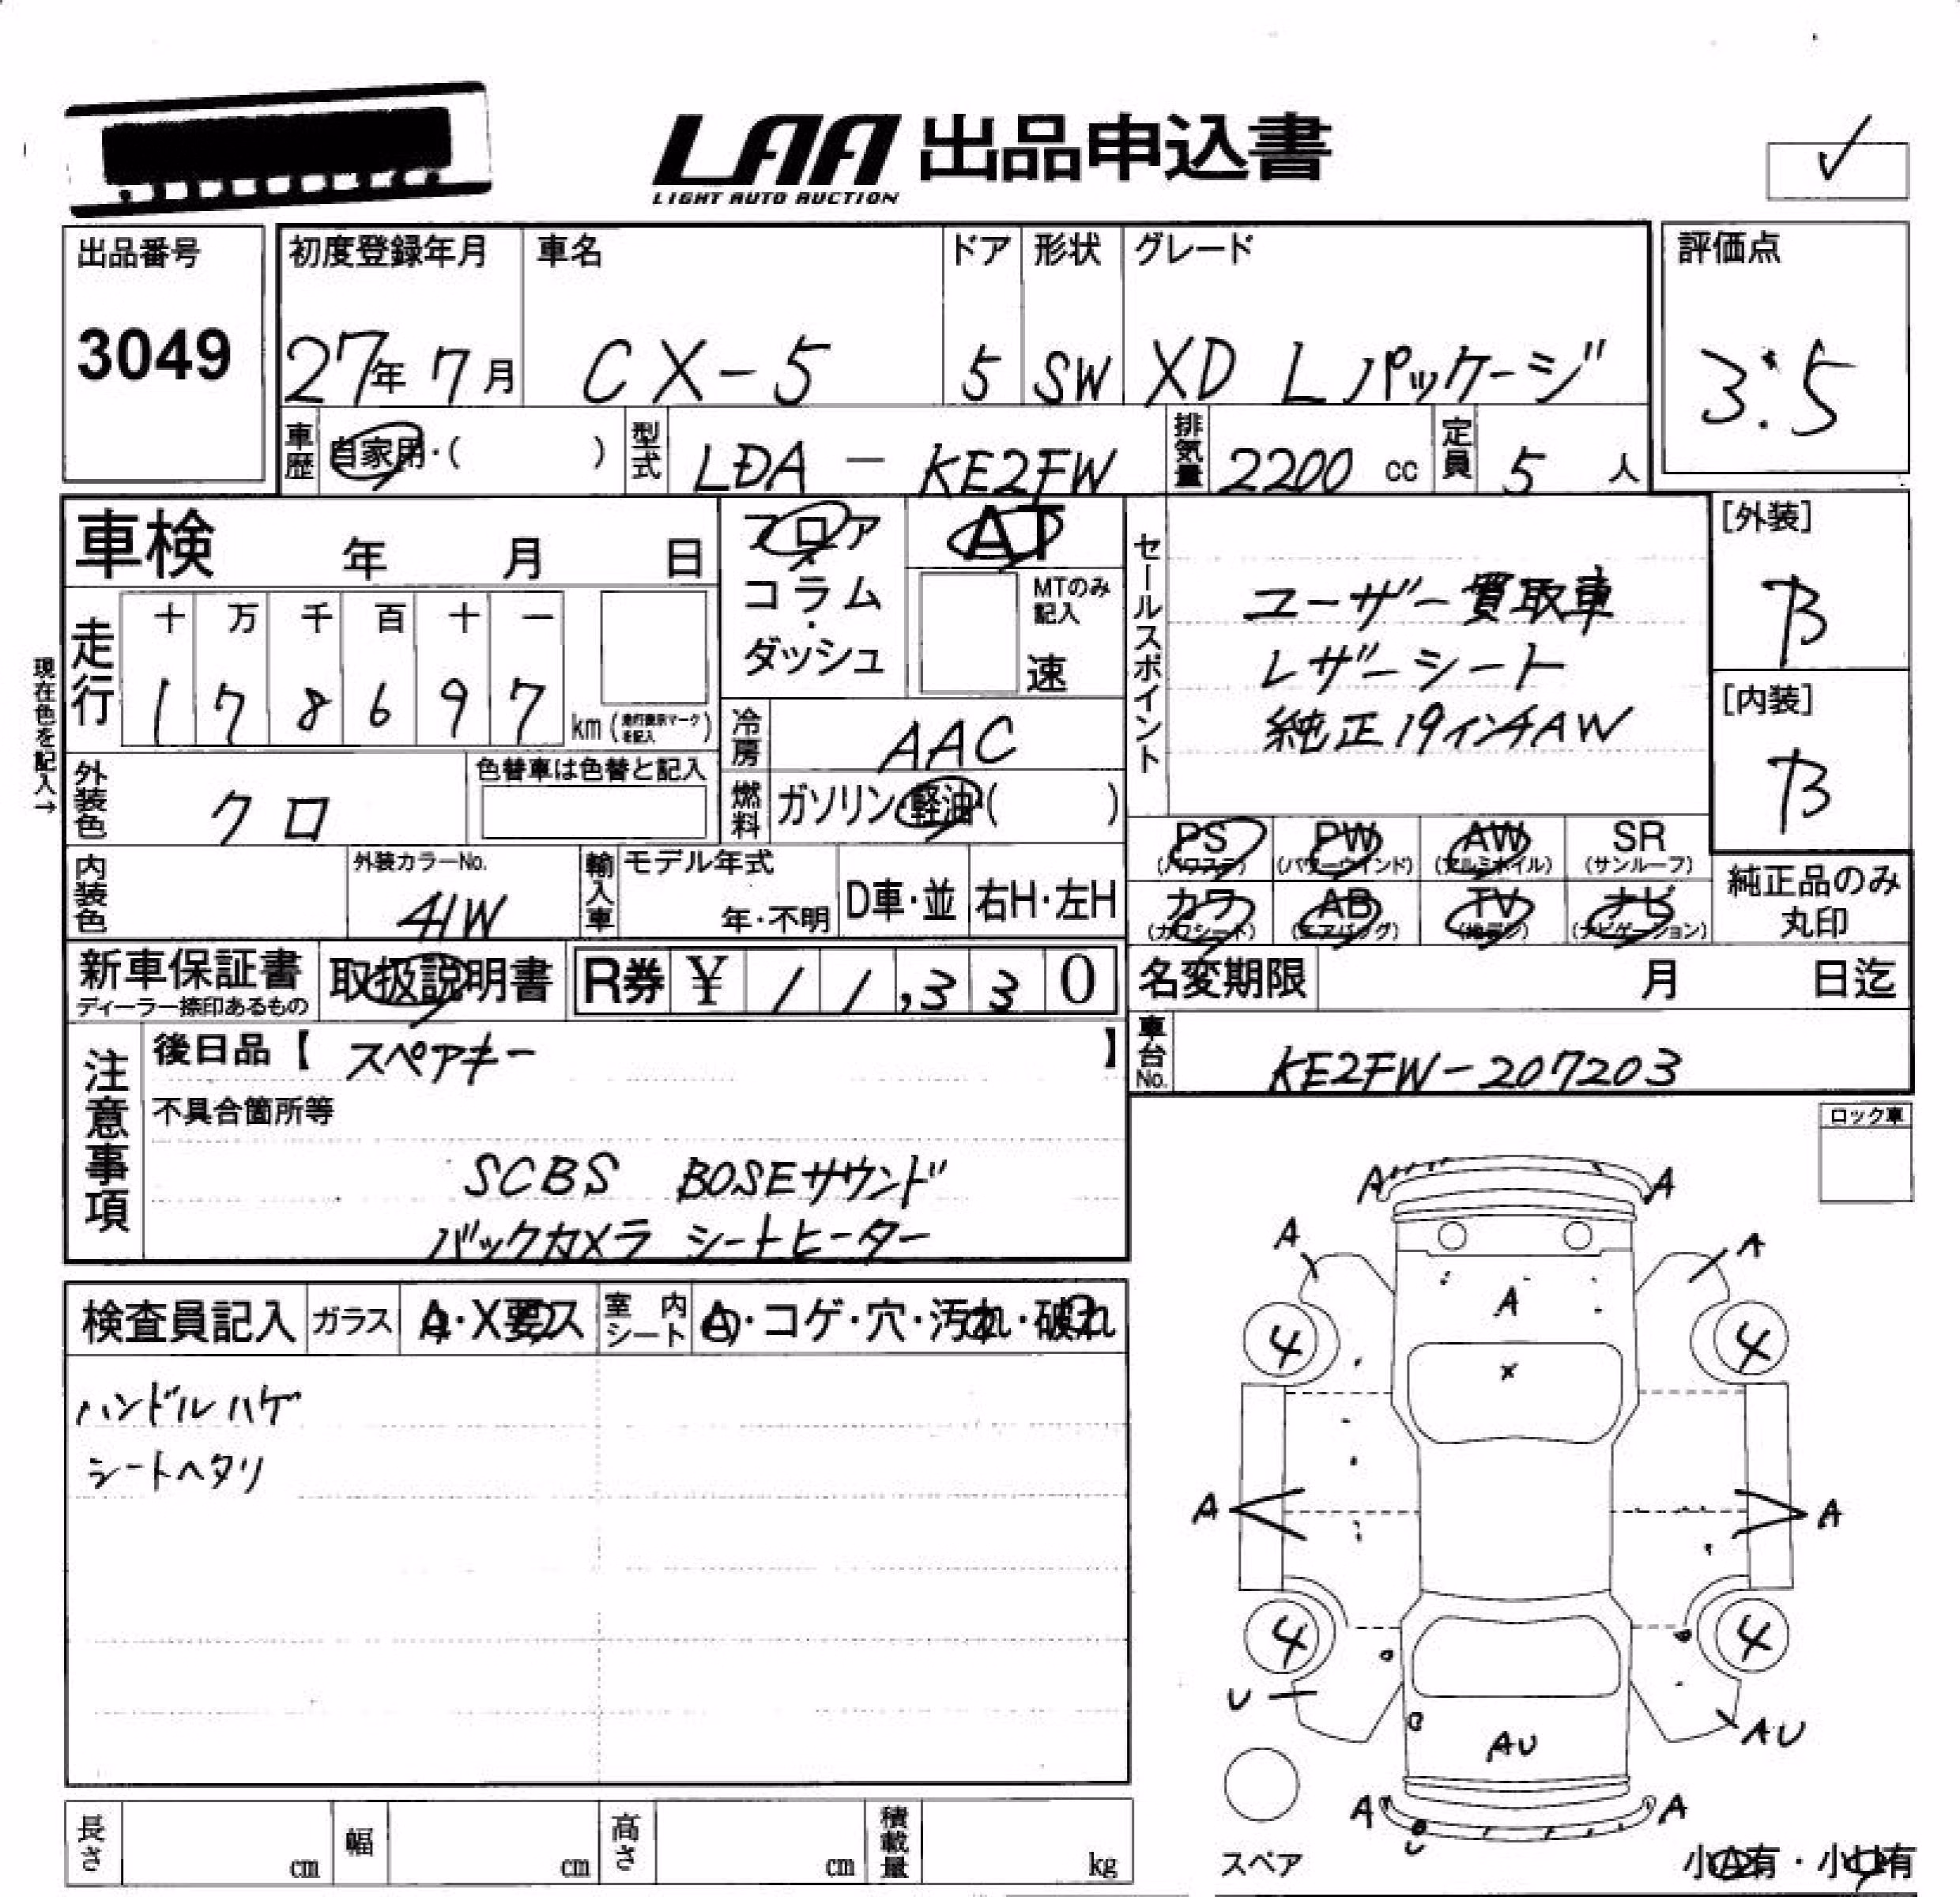 LAA 出品申込書
LIGHT AUTO AUCTION
出品番号
3049
初度登録年月
27年 7月
車名
CX-5
ドア
5
形状
SW
グレード
XD Lパッケージ
評価点
3.5
車歴
自家用・( )
型式
LDA - KE2FW
排気量
2200 cc
定員
5 人
車検 年 月 日
現在色を記入→
走行
十 万 千 百 十 一
1 7 8 6 9 7 km (走行表示マークを記入)
フロア・コラム・ダッシュ
AT
MTのみ記入
速
冷房
AAC
燃料
ガソリン・軽油・( )
セールスポイント
ユーザー買取車
レザーシート
純正19インチAW
[外装]
B
[内装]
B
外装色
クロ
色替車は色替と記入
内装色
外装カラーNo.
41W
輸入車
モデル年式
年・不明
D車・並
右H・左H
PS (パワステ)
PW (パワーウインド)
AW (アルミホイル)
SR (サンルーフ)
カワ (カワシート)
AB (エアバッグ)
TV (地デジ)
ナビ (ナビゲーション)
純正品のみ
丸印
新車保証書
ディーラー捺印あるもの
取扱説明書
R券 ¥ 11,330
名変期限 月 日迄
車台No.
KE2FW-207203
注意事項
後日品【 スペアキー 】
不具合箇所等
SCBS BOSEサウンド
バックカメラ シートヒーター
ロック車
検査員記入
ガラス
A・X要ス
室内シート
A・コゲ・穴・汚れ・破れ
ハンドルハゲ
シートヘタリ
A A
A A
A
4 4
X
A A
4 4
U AU
AU
A A
U
スペア
小A有・小U有
長さ cm
幅 cm
高さ cm
積載量 kg